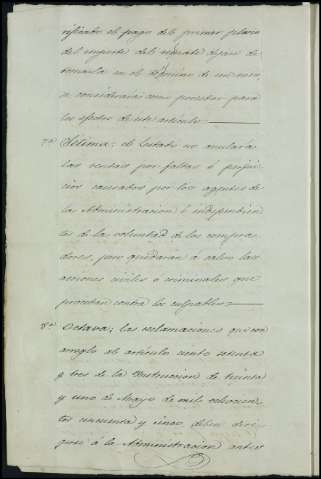 rificado el pago del primer plazo
del importe del remate dejare de
tomarla en el término de un mes
se considerará como poseedor para
los efectos de este artículo
7ª Sétima; el Estado no anulará
las ventas por faltas ó perjui-
cios causados por los agentes de
la Administracion é independien-
tes de la voluntad de los compra-
dores, pero quedarán á salvo las
acciones civiles ó criminales que
procedan contra los culpables
8ª Octava; las reclamaciones que con
arreglo al artículo ciento setenta
y tres de la Instruccion de treinta
y uno de Mayo de mil ochocien-
tos cincuenta y cinco, deben diri-
girse á la Administracion antes